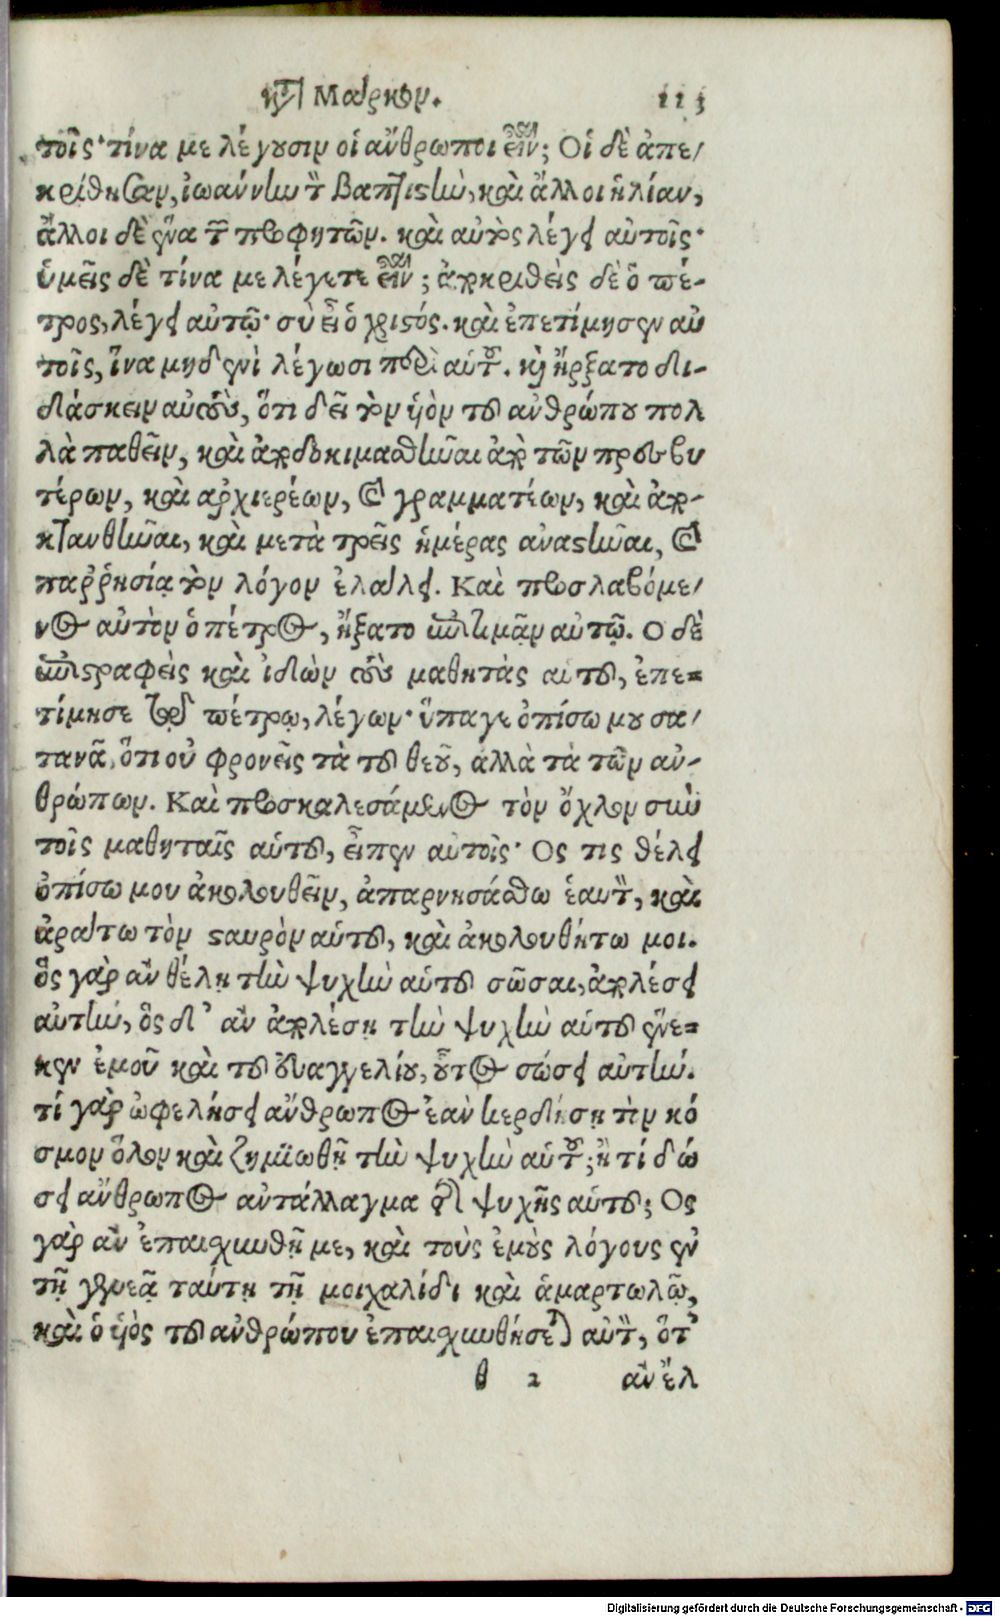 κτ̀ Μάρκον. 113
τοῖς· τίνα με λέγουσιν οἱ ἄνθρωποι εἶναι; Οἱ δὲ ἀπε/
κρίθησαν, ἰωάννην τὸν βαπτιστὴν, καὶ ἄλλοι ἠλίαν,
ἄλλοι δὲ ἕνα τῶν προφητῶν. καὶ αὐτὸς λέγει αὐτοῖς·
ὑμεῖς δὲ τίνα με λέγετε εἶναι; ἀποκριθεὶς δὲ ὁ πέ-
τρος, λέγει αὐτῷ· σὺ εἶ ὁ χριστός. καὶ ἐπετίμησεν αὐ
τοῖς, ἵνα μηδενὶ λέγωσι περὶ αὐτοῦ. καὶ ἤρξατο δι-
δάσκειν αὐτοὺς, ὅτι δεῖ τὸν ὑὸν τοῦ ἀνθρώπου πολ
λὰ παθεῖν, καὶ ἀποδοκιμασθῆναι ἀπὸ τῶν πρεσβυ
τέρων, καὶ ἀρχιερέων, καὶ γραμματέων, καὶ ἀπο-
κτανθῆναι, καὶ μετὰ τρεῖς ἡμέρας ἀναστῆναι, καὶ
παῤῥησίᾳ τὸν λόγον ἐλάλει. Καὶ προσλαβόμε/
νος αὐτὸν ὁ πέτρος, ἤξατο ἐπιτιμᾷν αὐτῷ. Ο δὲ
ἐπιστραφεὶς καὶ ἰδὼν τοὺς μαθητὰς αυτοῦ, ἐπε=
τίμησε τῷ πέτρῳ, λέγων· ὕπαγε ὀπίσω μου σα/
τανᾶ, ὅτι οὐ φρονεῖς τὰ τοῦ θεοῦ, ἀλλὰ τὰ τῶν ἀν-
θρώπων. Καὶ προσκαλεσάμενος τὸν ὄχλον σὺν
τοῖς μαθηταῖς αὑτοῦ, εἶπεν αὐτοῖς· Ος τις θέλει
ὀπίσω μου ἀκολουθεῖν, ἀπαρνησάσθω ἑαυτὸν, καὶ
ἀράτω τὸν σταυρὸν αὑτοῦ, καὶ ἀκολουθήτω μοι.
ὃς γὰρ ἂν θέλῃ τὴν ψυχὴν αὑτοῦ σῶσαι, ἀπολέσει
αὐτὴν, ὃς δ’ ἂν ἀπολέσῃ τὴν ψυχὴν αὑτοῦ ἕνε=
κεν ἐμοῦ καὶ τοῦ εὐαγγελίου, οὗτος σώσει αὐτὴν.
τί γὰρ ὠφελήσει ἄνθρωπος ἐὰν κερδήσῃ τὸν κό
σμον ὅλον καὶ ζημϊωθῇ τὴν ψυχὴν αὑτοῦ; ἢ τί δώ
σει ἄνθρωπος ἀντάλλαγμα τῆς ψυχῆς αὑτοῦ; Ος
γὰρ ἂν ἐπαισχυνθῇ με, καὶ τοὺς ἐμοὺς λόγους ἐν
τῇ γενεᾷ ταύτῃ τῇ μοιχαλίδι καὶ ἁμαρτωλῷ,
καὶ ὁ ὑὸς τοῦ ἀνθρώπου ἐπαισχυνθήσεται αὐτὸν, ὅτ’
θ 2 ἂν ἔλ
Digitalisierung gefördert durch die Deutsche Forschungsgemeinschaft - DFG